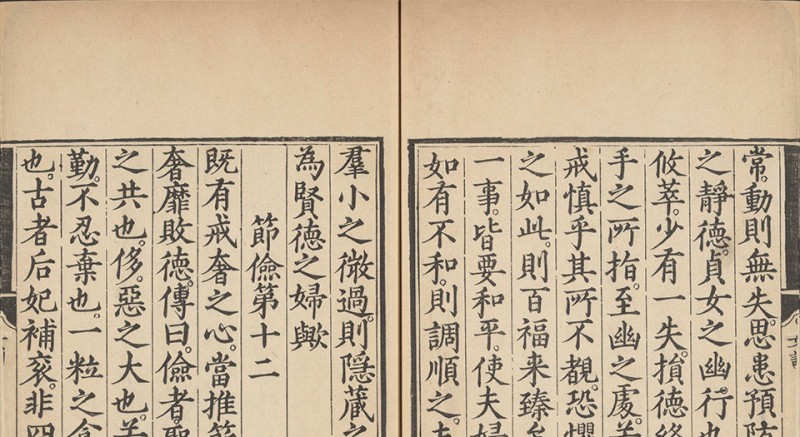 常。動則無失。思患預防
之靜德。貞女之幽。行也
攸萃。少有一失。損德
手之所指。至幽之處。若
戒慎乎其所不覩。恐懼
之如此。則百福来臻。
一事。皆要和平。使夫婦
如有不和。則調順之。
羣小之微過。則隱蔵之
為賢德之婦歟
節儉第十二
既有戒奢之心。當推節
奢靡敗德。傳曰。儉者。聖
之共也。侈。惡之大也。若
勤。不忍棄也。一粒之食
也。古者后妃補衮。非四